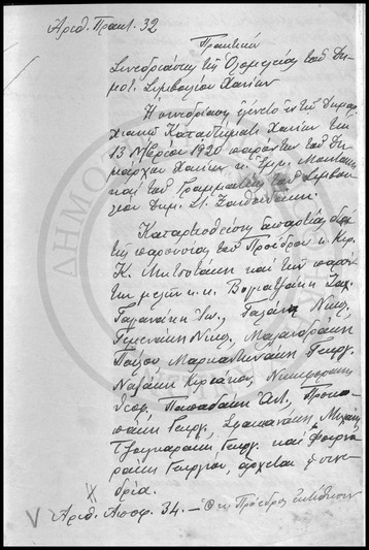 Αριθ. Πρακτ. 32
Πρακτικά
Συνεδριάσεως της Ολομελείας του Δη-
μοτ. Συμβουλίου Χανίων
Η συνεδρίασις εγένετο εν τω Δημαρ-
χιακώ Καταστήματι Χανίων την
13 Νβρίου 1920 παρόντων του Δη-
μάρχου Χανίων κ. Εμμ.
και του Γραμματέως του Συμβου-
λίου Δημ. Στ.
Καταρτισθείσης απαρτίας διά
της παρουσίας του Προέδρου κ. Κυρ.
Κ. Μητσοτάκη και των παρόν-
των μελών κ.κ. Βογιατζάκη
Γαγανάκη Ιω., Γαλάνη Νικ.,
Γεμενάκη Νικ., Μαλανδράκη
Παύλου Μαρκαντωνάκη Γεωργ.
Ναξάκη Κυριάκου, Νικηφοράκη
Θεοφ., Παπαδάκη Αντ., Προκο-
πάκη Γεωργ., Σφακιανάκη Μιχαήλ
Τζουγκαράκη Γεωργ. και Φουρνα-
ράκη Γεωργίου, άρχεται η συνε-
δρία.
Αριθ. Αποφ. 34. — Ο κ. Πρόεδρος
ΔΗΜΟ